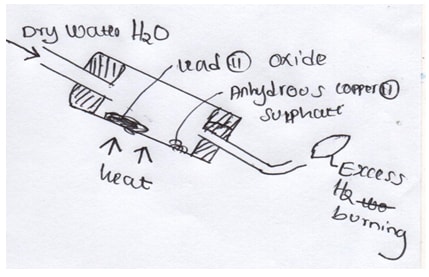 Dry Water H2O
Lead (II) oxide
Anhydrous copper (II)
sulphate
heat
Excess
H2
burning